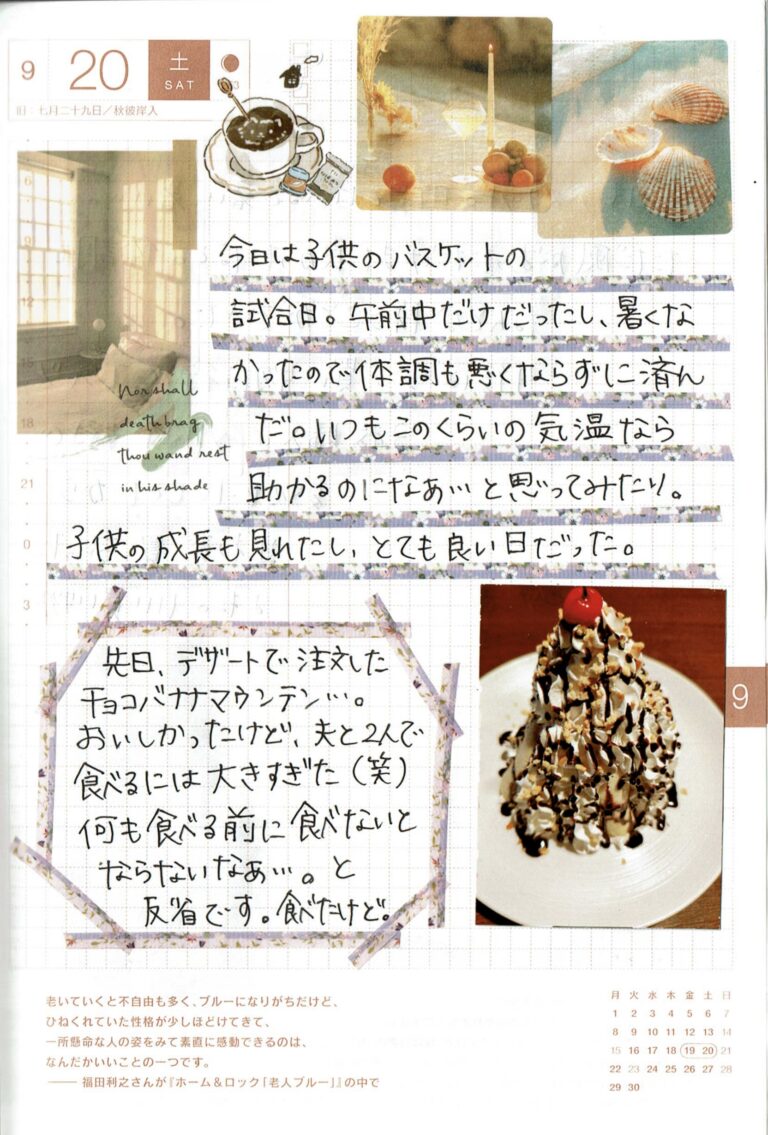 9 20 土
SAT
旧:七月二十九日/秋彼岸入
今日は子供のバスケットの
試合日。午前中だけだったし、暑くな
かったので体調も悪くならずに済ん
だ。いつもこのくらいの気温なら
助かるのになぁ…と思ってみたり。
子供の成長も見れたし、とても良い日だった。
Nor shall
death brag
thou wand rest
in his shade
6
12
18
21
0
3
先日、デザートで注文した
チョコバナナマウンテン…。
おいしかったけど、夫と2人で
食べるには大きすぎた(笑)
何も食べる前に食べないと
ならないなぁ…。と
反省です。食べたけど。
9
老いていくと不自由も多く、ブルーになりがちだけど、
ひねくれていた性格が少しほどけてきて、
一所懸命な人の姿をみて素直に感動できるのは、
なんだかいいことの一つです。
—— 福田利之さんが『ホーム&ロック「老人ブルー」』の中で
月 火 水 木 金 土 日
1 2 3 4 5 6 7
8 9 10 11 12 13 14
15 16 17 18 19 20 21
22 23 24 25 26 27 28
29 30